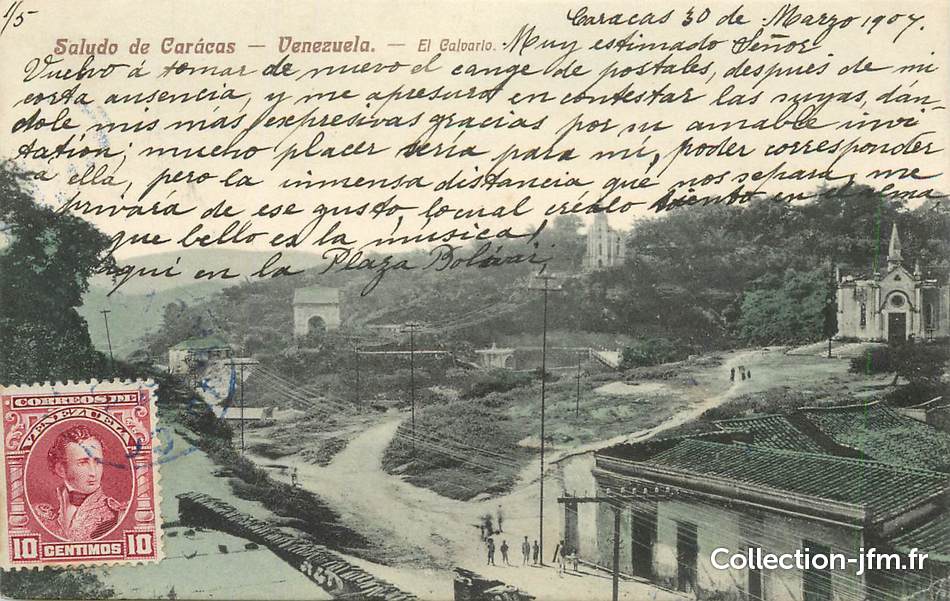 1/5
Caracas 30 de Marzo 1907.
Saludo de Carácas — Venezuela. — El Calvario. Muy estimado Señor
Vuelvo á tomar de nuevo el cange de postales, después de mi
corta ausencia, y me apresuro en contestar las suyas, dán-
dole mis más expresivas gracias por su amable invi-
tatión; mucho placer sería para mi, poder corresponder
a ella, pero la inmensa distancia que nos separa, me
privará de ese gusto, locual créalo siento en el alma
que bello es la música!
aquí en la Plaza Bolívar
CORREOS DE
VENEZUELA
10 CENTIMOS 10
Collection-jfm.fr